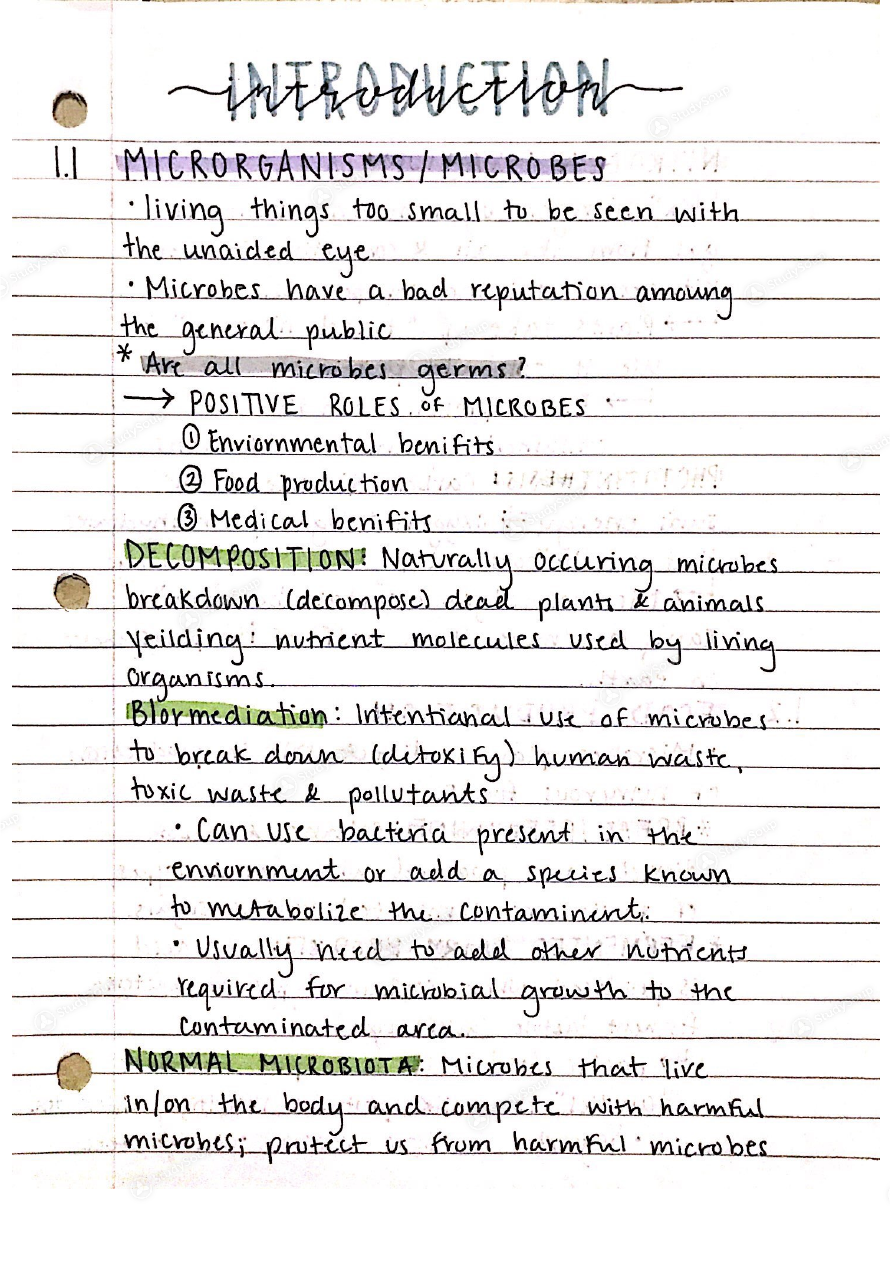 INTRODUCTION
introduction
1.1 MICRORGANISMS / MICROBES
· living things too small to be seen with
the unaided eye
· Microbes have a bad reputation amoung
the general public
* Are all microbes germs?
→ POSITIVE ROLES OF MICROBES
① Enviornmental benifits
② Food production
③ Medical benifits
DECOMPOSITION: Naturally occuring microbes
breakdown (decompose) dead plants & animals
Yeilding: nutrient molecules used by living
organisms.
Biormediation: Intentianal use of microbes
to break down (detoxify) human waste,
toxic waste & pollutants
· Can use bacteria present in the
enviornment or add a species known
to metabolize the contaminent.
· Usually need to add other nutrients
required for microbial growth to the
contaminated area.
NORMAL MICROBIOTA: Microbes that live
in/on the body and compete with harmful
microbes; protect us from harmful microbes